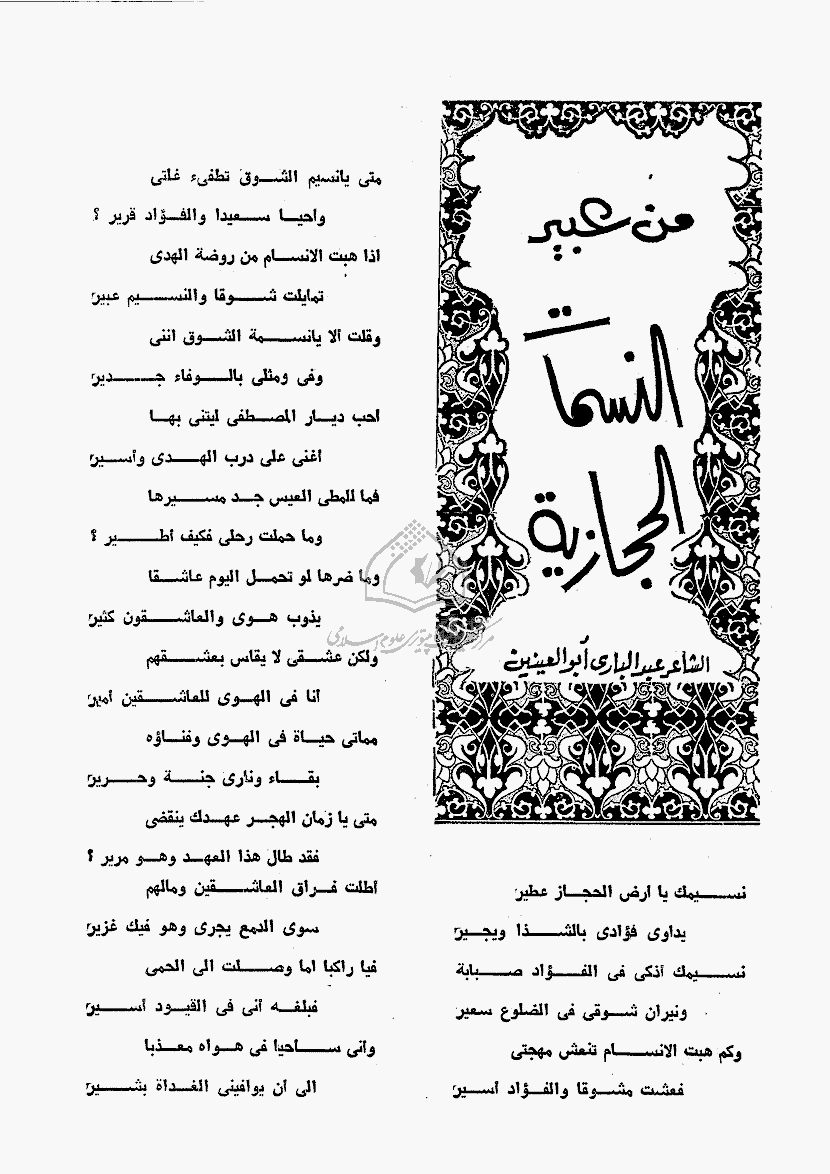 من عبير
النسمات
الحجازية
الشاعر عبد البارى أبو العينين
نسيمك يا أرض الحجاز عطير
يداوى فؤادى بالشذا ويجير
نسيمك أذكى فى الفؤاد صبابة
ونيران شوقى فى الضلوع سعير
وكم هبت الانسام تنعش مهجتى
فعشت مشوقا والفؤاد أسير
متى يانسيم الشوق تطفىء غلتى
وأحيا سعيدا والفؤاد قرير ؟
اذا هبت الانسام من روضة الهدى
تمايلت شوقا والنسيم عبير
وقلت ألا يانسمة الشوق اننى
وفى ومثلى بالوفاء جدير
أحب ديار المصطفى ليتنى بها
أغنى على درب الهدى وأسير
فما للمطى العيس جد مسيرها
وما حملت رحلى فكيف أطير ؟
وما ضرها لو تحمل اليوم عاشقا
يذوب هوى والعاشقون كثير
ولكن عشقى لا يقاس بعشقهم
أنا فى الهوى للعاشقين أمير
مماتى حياة فى الهوى وفناؤه
بقاء ونارى جنة وحرير
متى يا زمان الهجر عهدك ينقضى
فقد طال هذا العهد وهو مرير ؟
أطلت فراق العاشقين ومالهم
سوى الدمع يجرى وهو فيك غزير
فيا راكبا اما وصلت الى الحمى
فبلغه أنى فى القيود أسير
وانى ساحيا فى هواه معذبا
الى أن يوافينى الغداة بشير
مركز علوم اسلامى